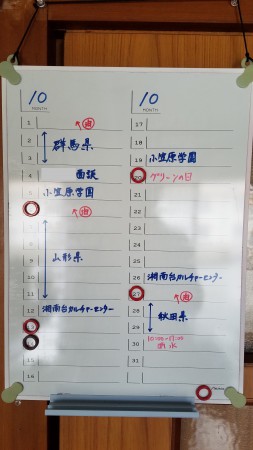 10
MONTH
1 油
2 群馬県
3
4 面談
5 小笠原学園
油
7
8
9 山形県
10
11
12 湘南台カルチャーセンター
15
16
10
MONTH
17
18
19 小笠原学園
グリーンの日
21
22
23
24
25
26 湘南台カルチャーセンター
油
28
29 秋田県
30 10:00~17:00
31